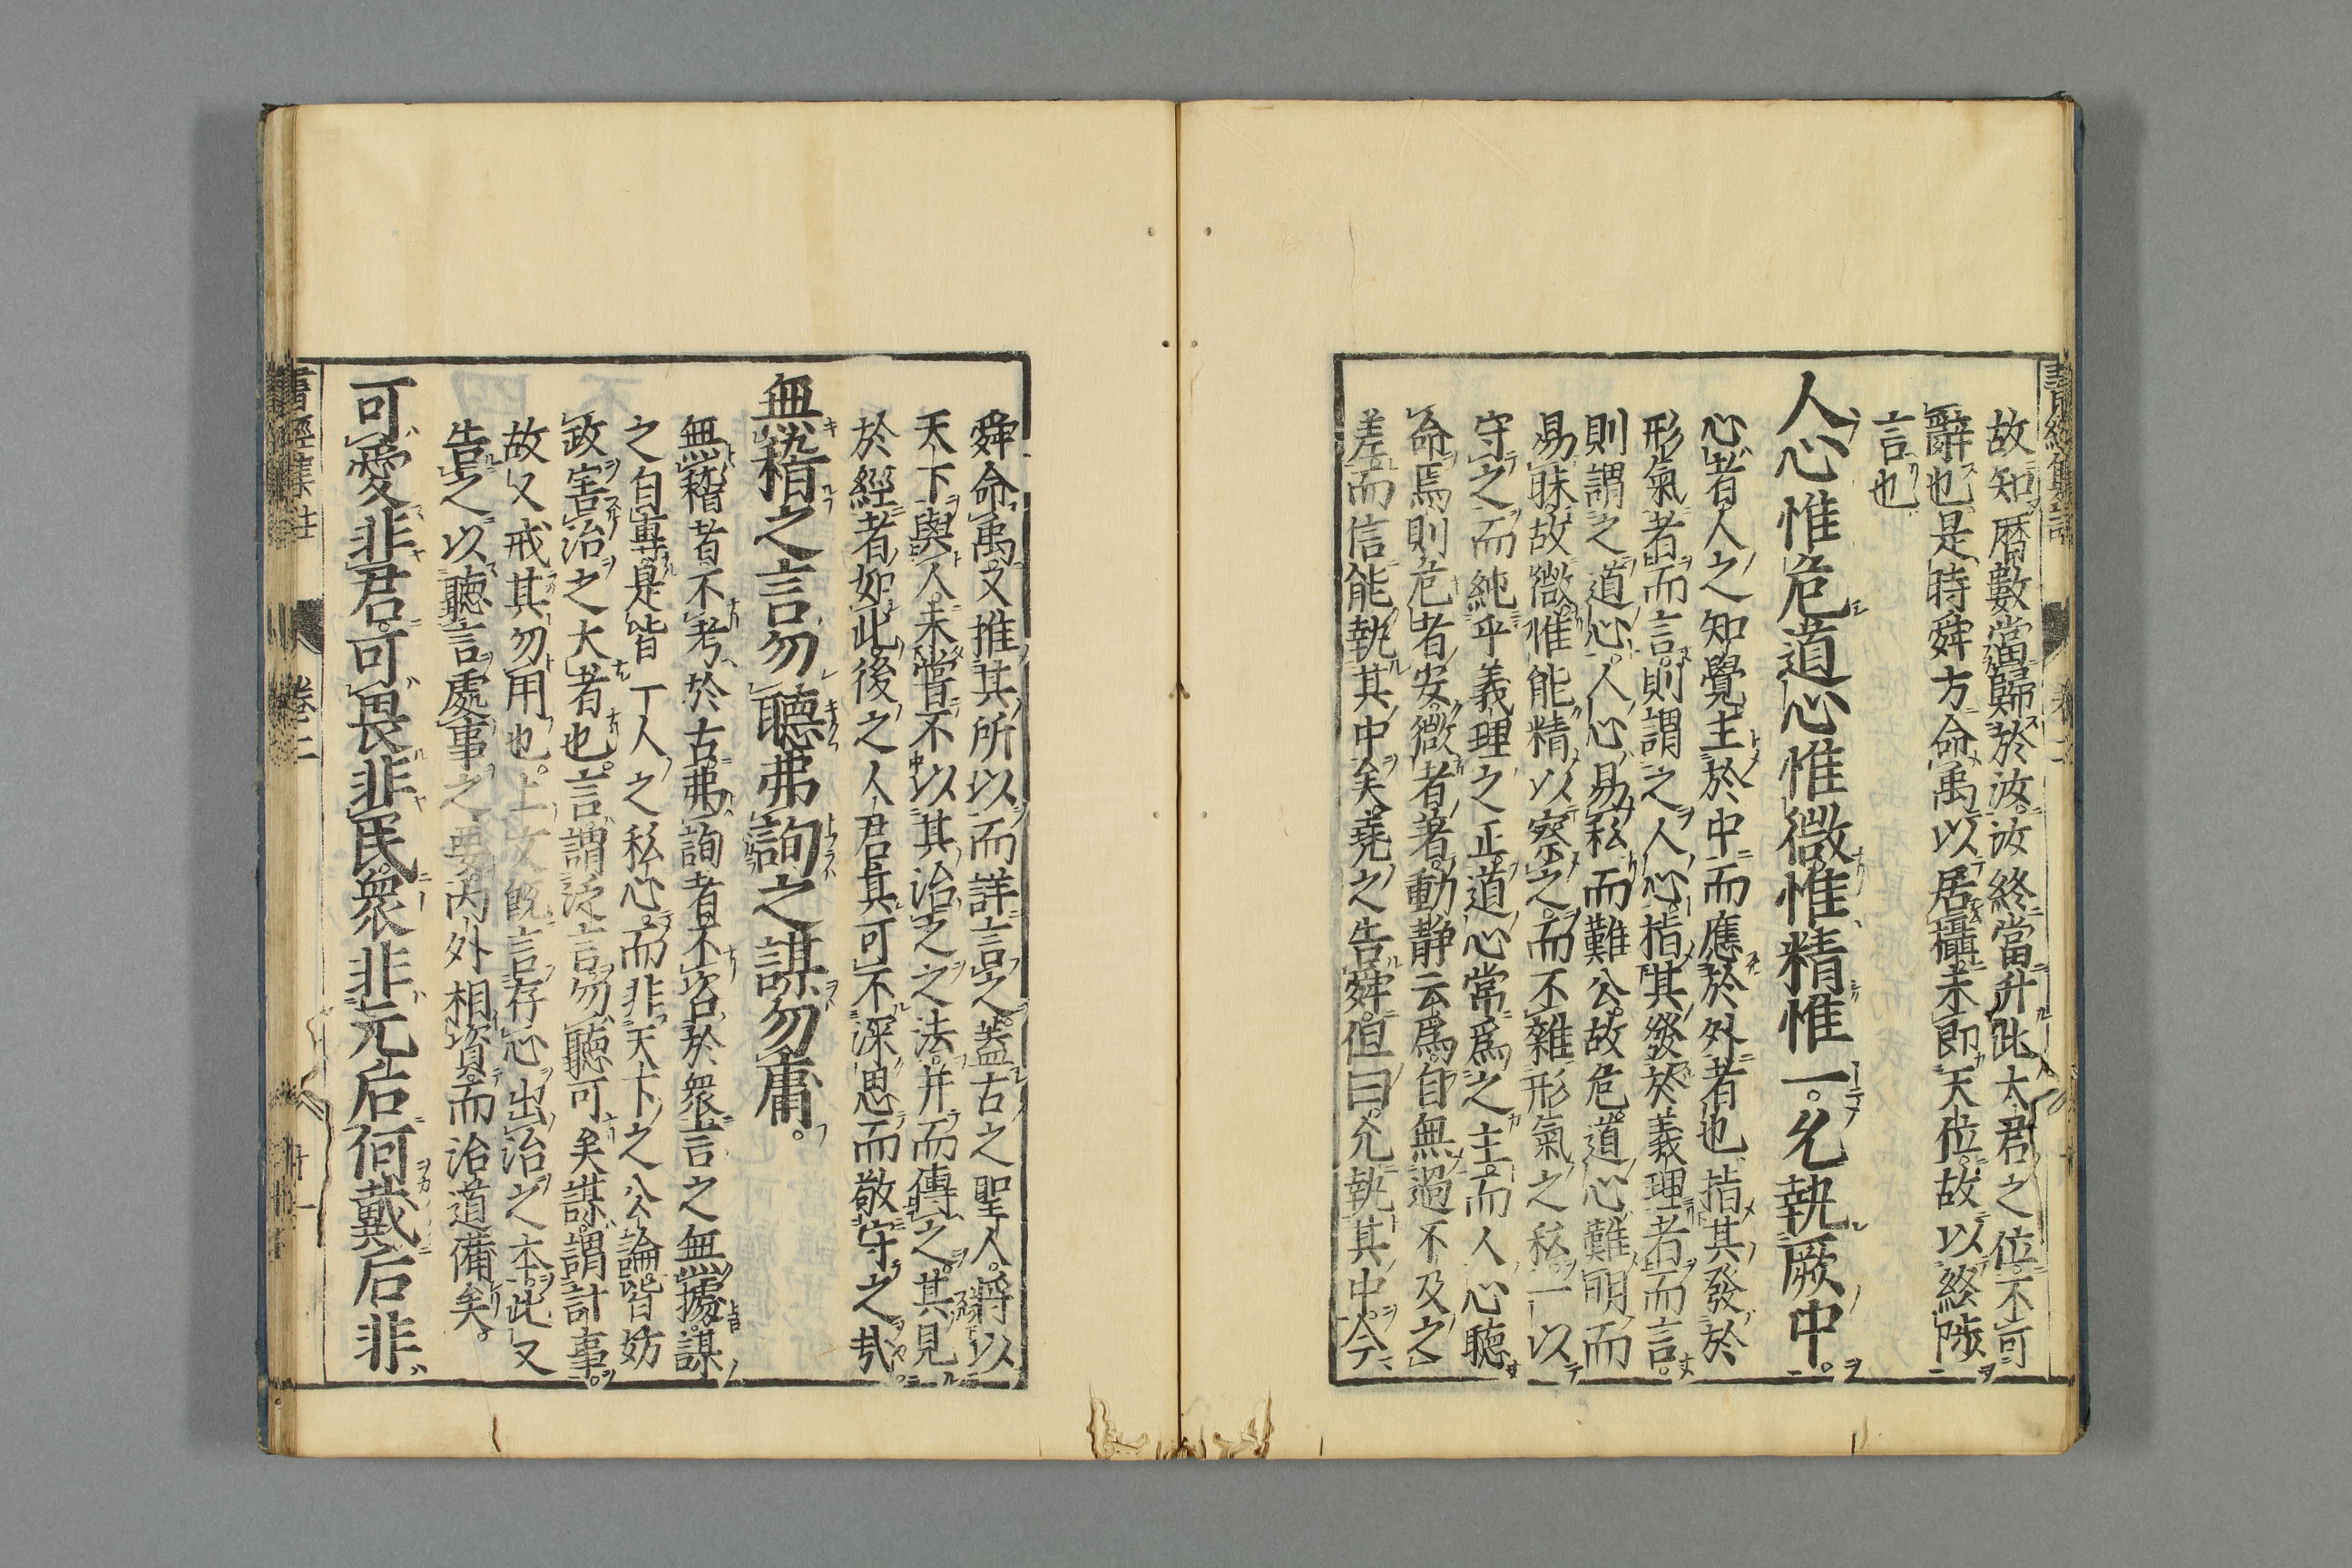 故知曆數當歸於汝。汝終當升此大君之位。不可
辭也。是時舜方命禹以居攝。未即天位。故以終陟
言也
人心惟危道心惟微惟精惟一。允執厥中。
心者人之知覺主於中而應於外者也指其發於
形氣者而言。則謂之人心。指其發於義理者而言。
則謂之道心。人心易私而難公。故危。道心難明而
易昧。故微。惟能精以察之。而不雜形氣之私一以
守之而純乎義理之正。道心常爲之主。而人心聽
命焉則危者安。微者著。動靜云爲。自無過不及之
差而信能執其中矣。堯之告舜。但曰。允執其中。今
舜命禹。又推其所以而詳言之。蓋古之聖人。將以
天下與人。未嘗不以其治之之法。并而傳之。其見
於經者如此。後之人君其可不深思而敬守之哉。
無稽之言勿聽弗詢之謀勿庸。
無稽者不考於古。弗詢者不咨於衆言之無據。謀
之自專。是皆一人之私心。而非天下之公論。皆妨
政害治之大者也。言謂泛言勿聽可矣謀謂計事。
故又戒其勿用也。上文既言存心出治之本。此又
告之以聽言處事之要。內外相資。而治道備矣。
可愛非君。可畏非民。衆非元后何戴后非
書經集註 卷二 廿一